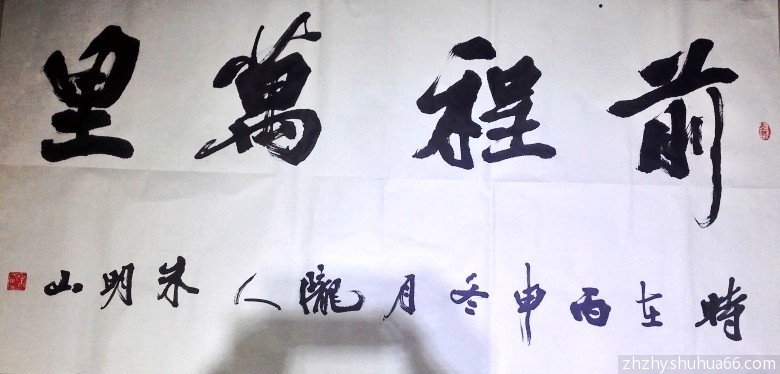 前程萬里
時在丙申冬月隴人朱明山
zhzhyshuhua66.com